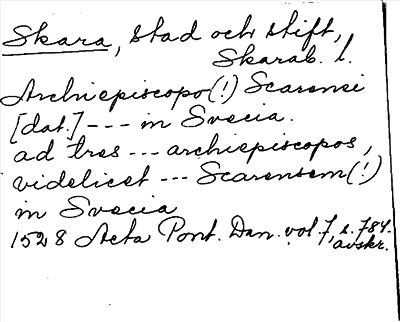 Skara, stad och stift,
Skarab. l.
Archiepiscopo(!) Scarensi
[dat.] --- in Svecia.
ad tres --- archiepiscopos,
videlicet --- Scarensem(!)
in Svecia
1528 Acta Pont. Dan. vol. 7, s. 784.
avskr.